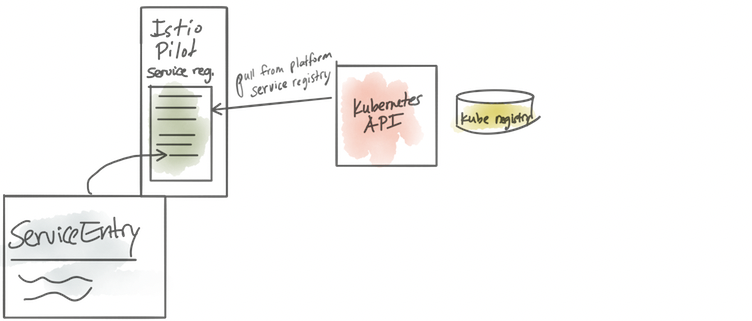 Istio
Pilot
Service reg.
Pull from platform
service registry
Kubernetes
API
Kube registry
ServiceEntry